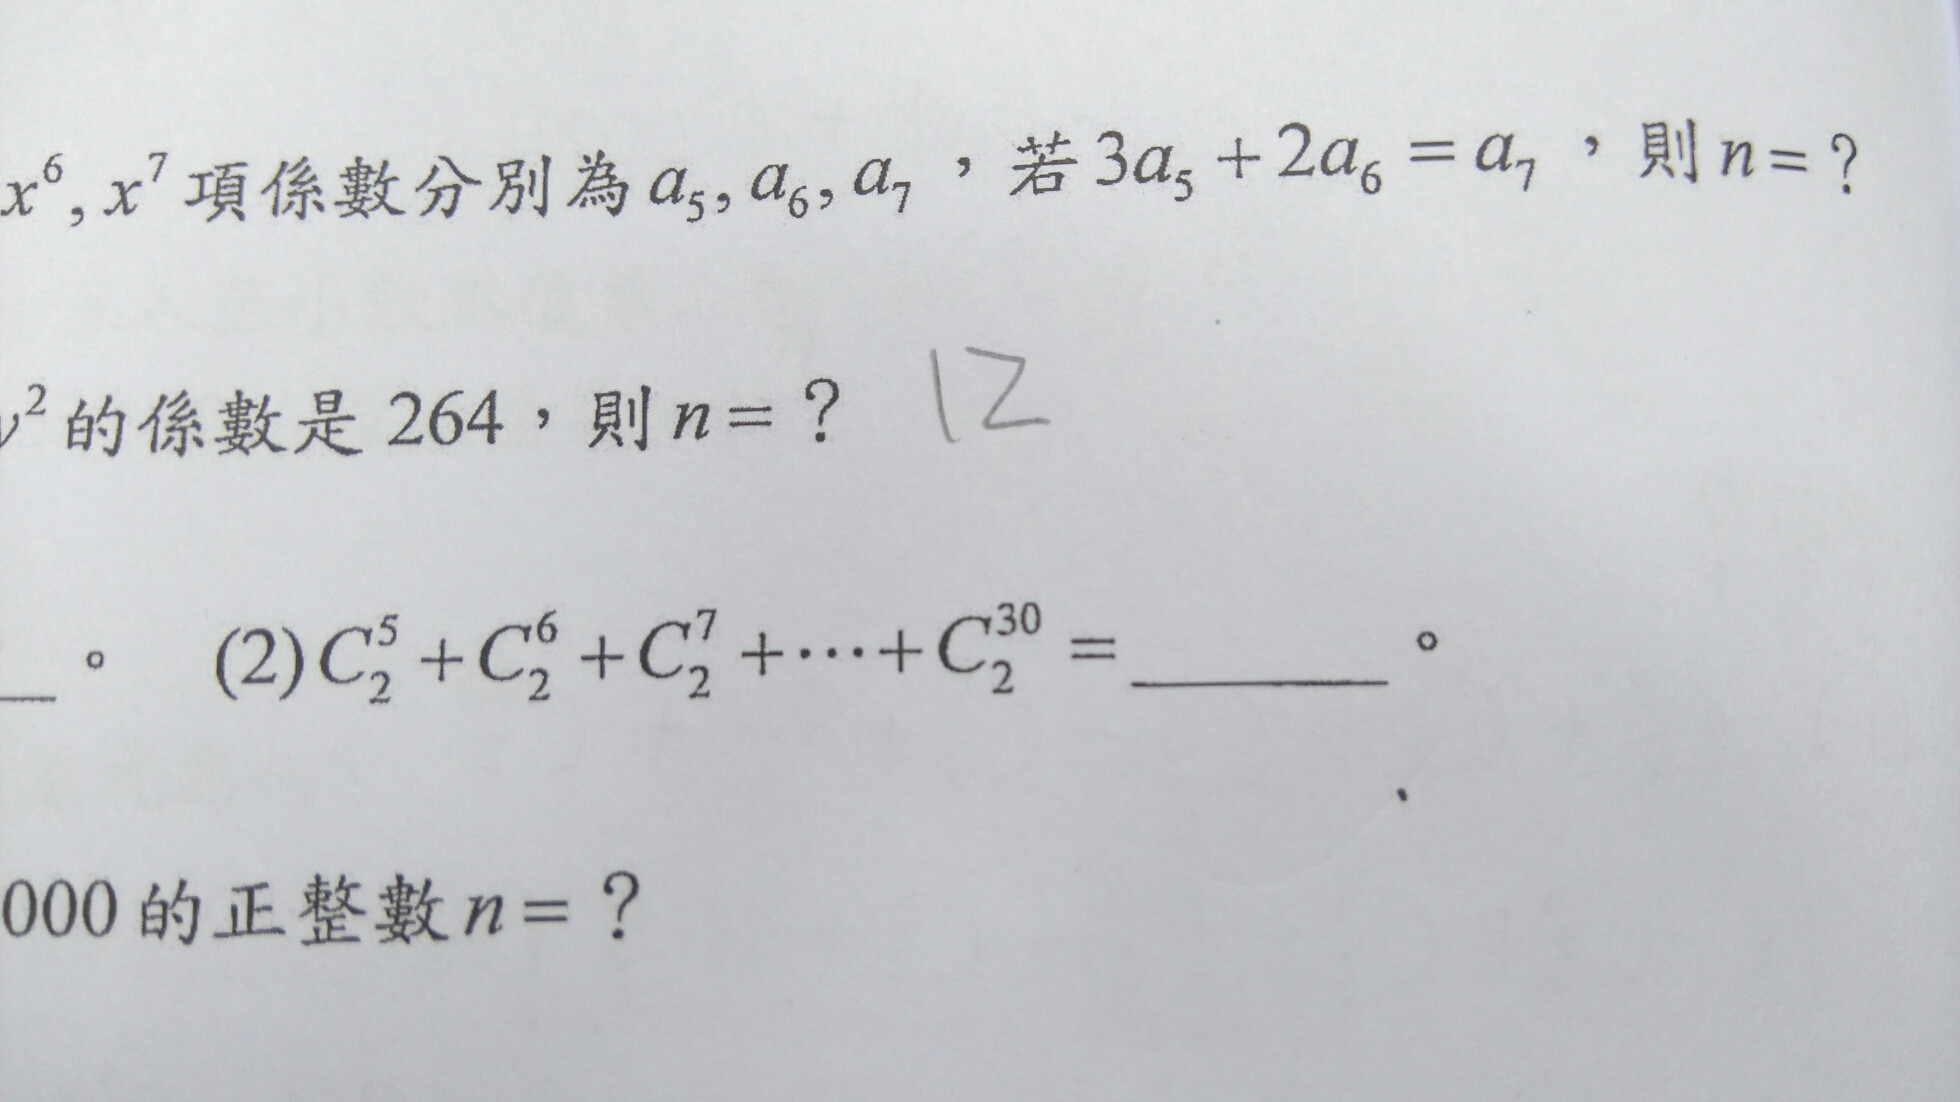 x⁶, x⁷ 項係數分別為 a₅, a₆, a₇，若 3a₅ + 2a₆ = a₇，則 n = ?
y² 的係數是 264，則 n = ? 12
。 (2) C₂⁵ + C₂⁶ + C₂⁷ + ⋯ + C₂³⁰ = ______。
000 的正整數 n = ?